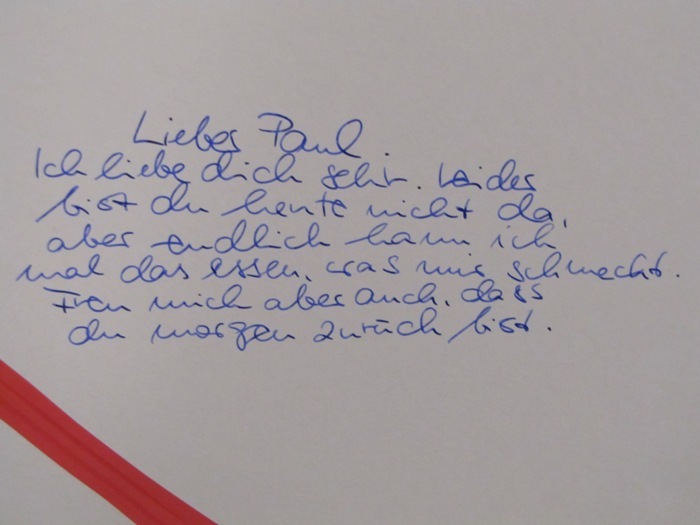 Lieber Paul.
Ich liebe dich sehr. Leider
bist du heute nicht da,
aber endlich kann ich
mal das essen, was mir schmeckt.
Freu mich aber auch, dass
du morgen zurück bist.